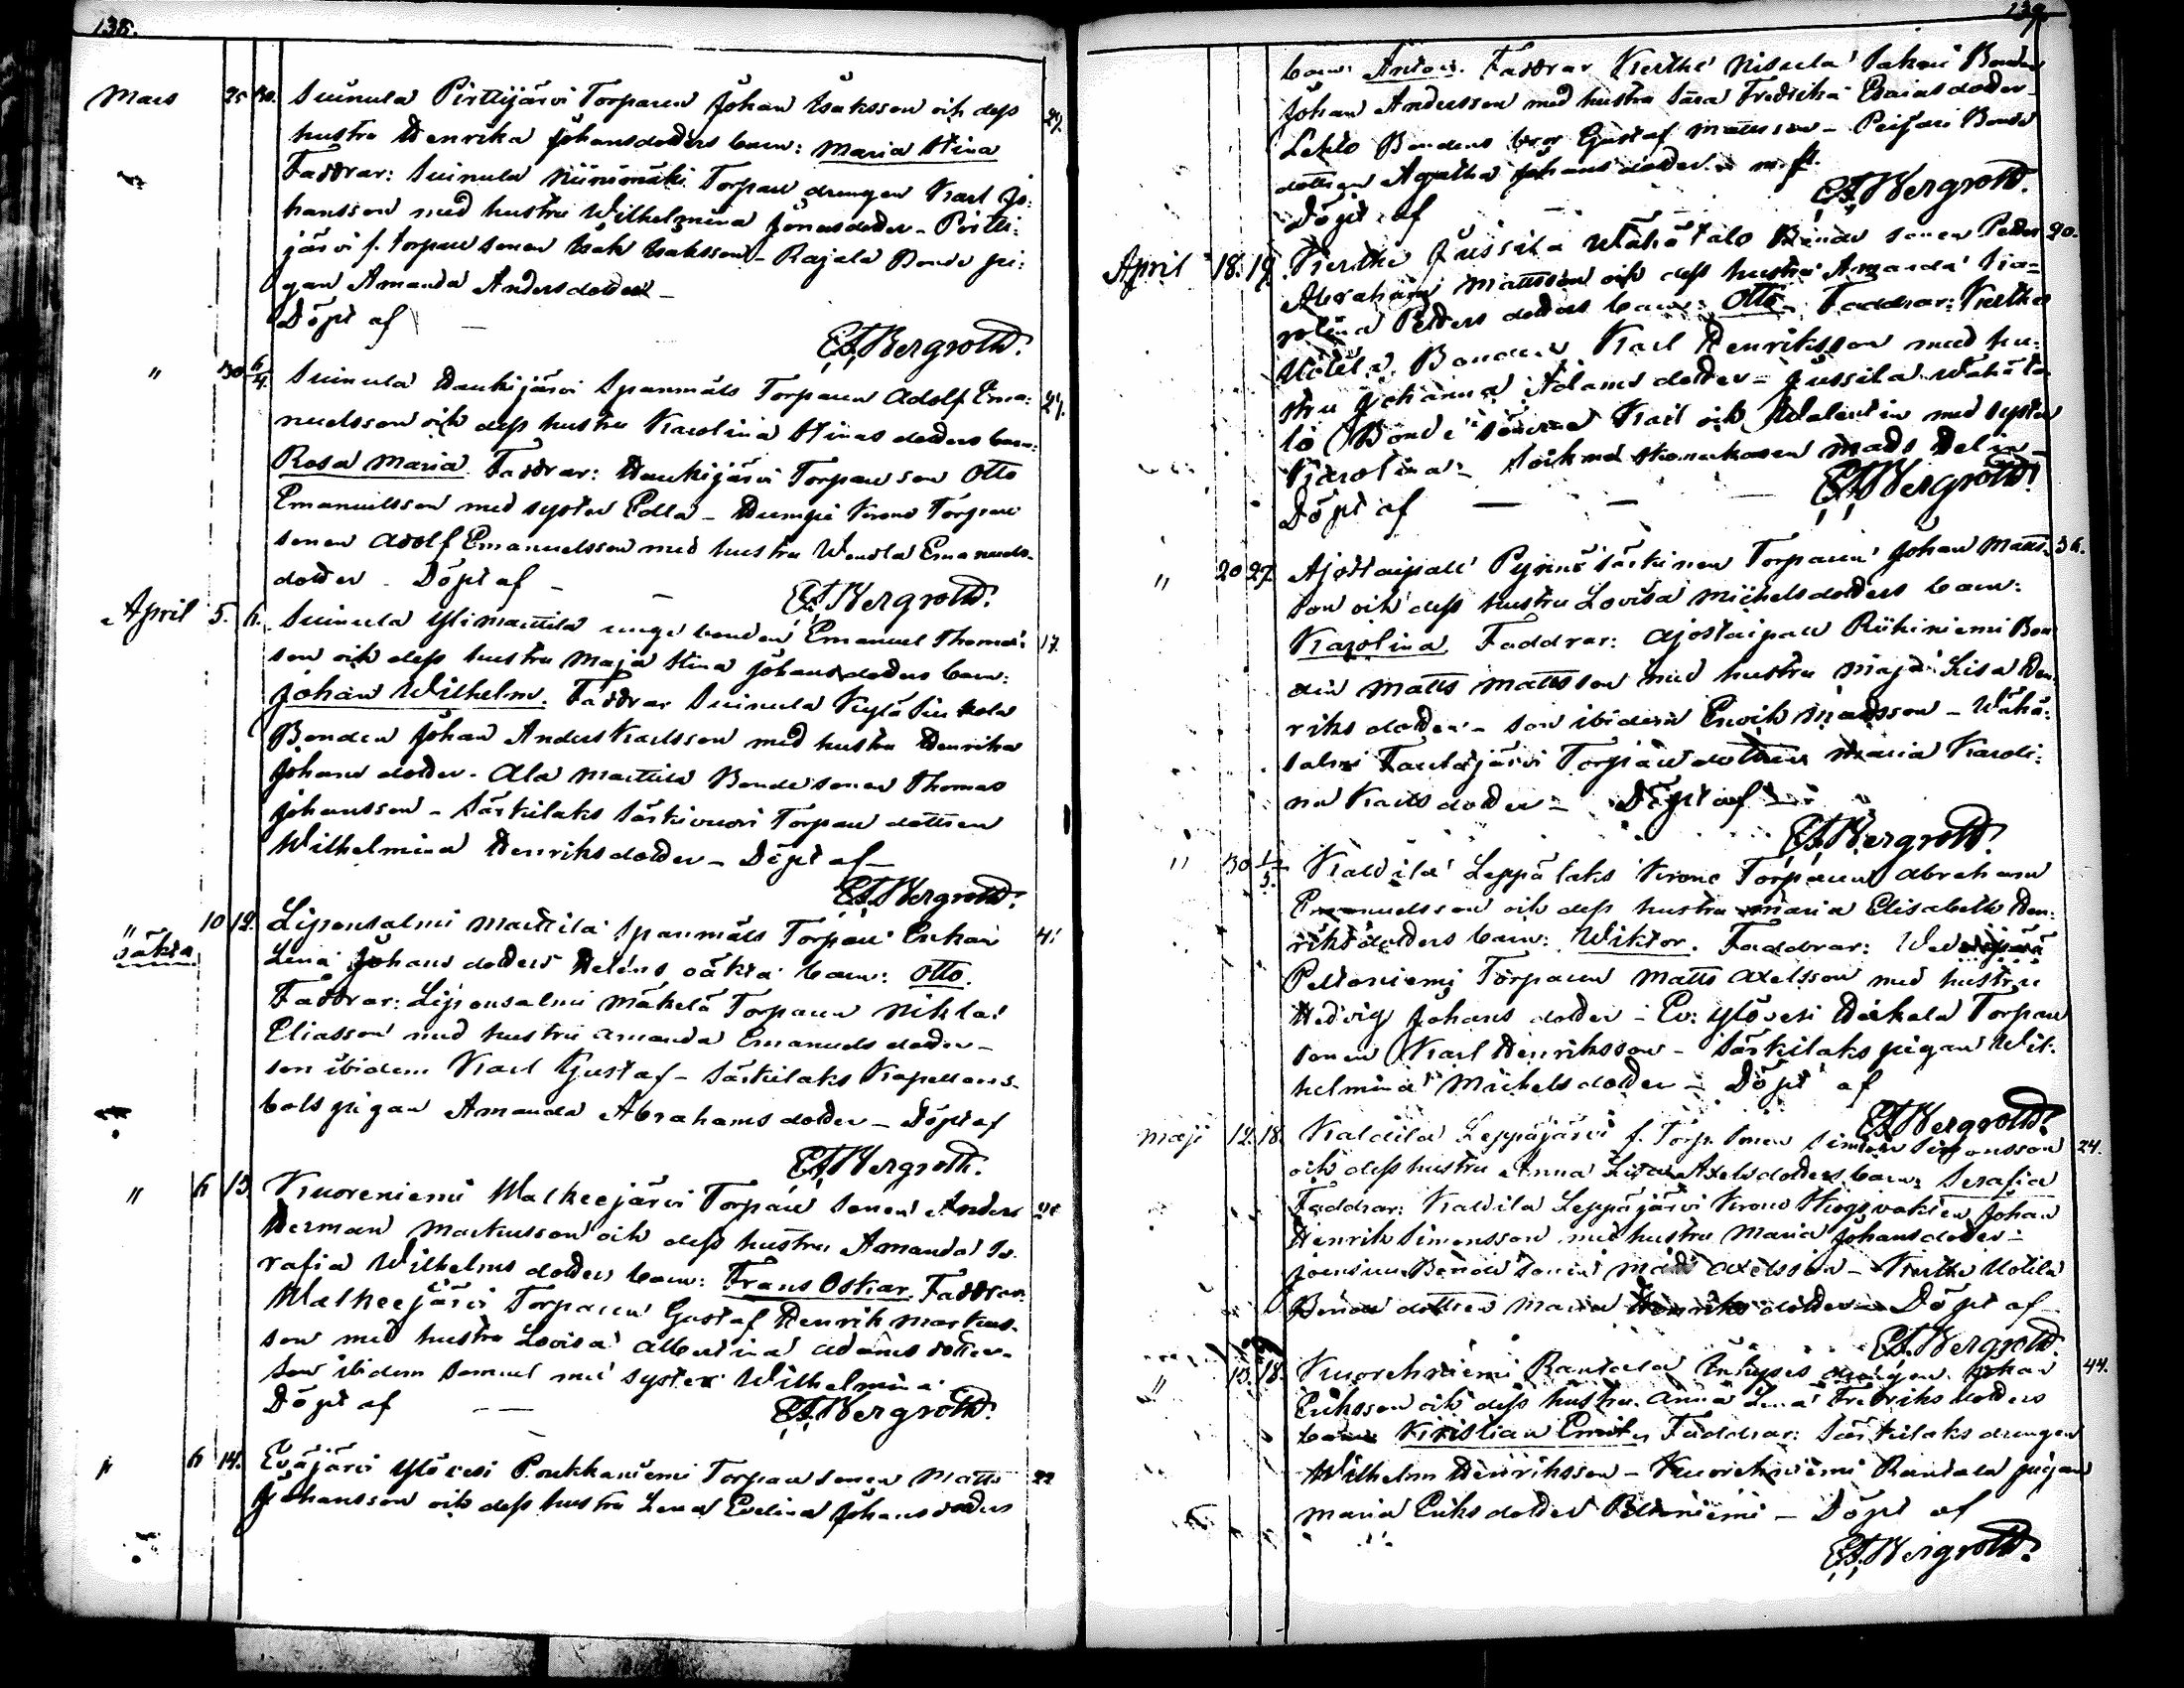 138.
Mars 25 30. Suinula Pirttijärvi Torparen Johan Isaksson och dess 29.
hustru Henrika Johansdotters barn: Maria Stina
Faddrar: Suinula Niinimäki Torpare drengen Karl Jo:
hansson med hustru Wilhelmina Jonasdotter - Pirtti:
järvi f. torpare sonen Isak Isaksson - Rajala Bonde pi:
gan Amanda Andersdotter -
Döpt af
E.F. Bergroth.
" 30 6/4 Suinula Haukijärvi Spanmåls Torparen Adolf Ema: 27.
nuelsson och dess hustru Karolina Stinas dotters barn:
Rosa Maria. Faddrar: Haukijärvi Torpare son Otto
Emanuelsson med syster Edla - Krono Torpare
sonen Adolf Emanuelsson med hustru Wendla Emanuels-
dotter - Döpt af -
E.F. Bergroth.
April 5. 6. Suinula Ylimattila unge bonden Emanuel Thomas: 17.
son och dess hustru Maja Stina Johansdotters barn:
Johan Wilhelm. Faddrar Suinula Kylä
Bonden Johan Anders Karlsson med hustru Henrika
Johans dotter - Ala Mattila Bonde sonen Thomas
Johansson - Särkilaks Särkivuori Torpare dottren
Wilhelmina Henriksdotter - Döpt af -
E.F. Bergroth.
" 10 12. Liponsalmi Mattila Spanmåls Torpare Enkan 41
oäkta Lena Johans dotters Heléns oäkta barn: Otto.
Faddrar: Liponsalmi Mäkelä Torparen Niklas
Eliasson med hustru Amanda Emanuels dotter -
son ibidem Karl Gustaf - Särkilaks Kapellans-
bols pigan Amanda Abrahams dotter - Döpt af
E.F. Bergroth.
" 6 13. Kuoreniemi Walkeejärvi Torpare sonen Anders
Herman Markusson och dess hustru Amanda Se-
rafia Wilhelms dotters barn: Frans Oskar. Faddrar:
Walkeejärvi Torparen Gustaf Henrik Markus-
son med hustru Lovisa Albertina Adams dotter -
son ibidem Samuel med syster Wilhelmina
Döpt af
E.F. Bergroth.
" 6 14. Eväjärvi Ylövesi Poukkaniemi Torpare sonen Matts 22
Johansson och dess hustru Lena Evelina Johansdotters
139.
barn: Anton. Faddrar Kertte Nisula Bonden
Johan Andersson med hustru Sara Fredrika Esaiasdotter -
Lehto Bondens bror Gustaf Mattsson - Bonde
dottren Agatha Johansdotter m. fl.
Döpt af
E.F. Bergroth.
April 18. 19. Kertte Jussila Wähätalo Bonde sonen Petter 20.
Abraham Mattsson och dess hustru Amanda Ka=
rolina Petters dotters barn: Otto. Faddrar: Kertte
Uotila Bonden Karl Henriksson med hu:
stru Johanna Adams dotter - Jussila Wähäta
lo Bonde sönerna Karl och Walentin med syster
Karolina - Mats Helin -
Döpt af
E.F. Bergroth.
" 20 27. Ajostaipale Särkinen Torparen Johan Matts- 36.
son och dess hustru Lovisa Michelsdotters barn:
Karolina. Faddrar: Ajostaipale Riihiniemi Bon
den Matts Mattsson med hustru Maja Lisa Hen:
riks dotter - son ibidem Enok Madsson - Wähä:
salmi Tautajärvi Torpare dottren Maria Karoli:
na Karls dotter - Döpt af
E.F. Bergroth.
" 30 1/5. Kaldila Leppälaks Krono Torparen Abraham
Emanuelsson och dess hustru Maria Elisabeth Hen:
riksdotters barn: Wiktor. Faddrar:
Peltoniemi Torparen Matts Axelsson med hustru
Hedvig Johans dotter - Ev: Ylövesi Torpare
sonen Karl Henriksson - Särkilaks pigan Wil:
helmina Michelsdotter - Döpt af
E.F. Bergroth.
Maji 12. 18. Kaldila Leppäjärvi f. Torp. sonen Simon Simonsson 24.
och dess hustru Anna Lisa Axelsdotters barn: Serafia
Faddrar: Kaldila Leppäjärvi Krono Skogsvakten Johan
Henrik Simonsson med hustru Maria Johansdotter -
Joensuu Bonde sonen Axelsson - Kertte Uotila
Bonde dottren Maria Henriks dotter - Döpt af
E.F. Bergroth.
" 15. 18. Kuorehniemi Rantala Inhyses drengen Johan 44.
Eriksson och dess hustru Anna Lena Fredriks dotters
barn Kristian Emil. Faddrar: Särkilaks drengen
Wilhelm Henriksson - Kuorehniemi Rantala pigan
Maria Eriksdotter Peltoniemi - Döpt af
E.F. Bergroth.